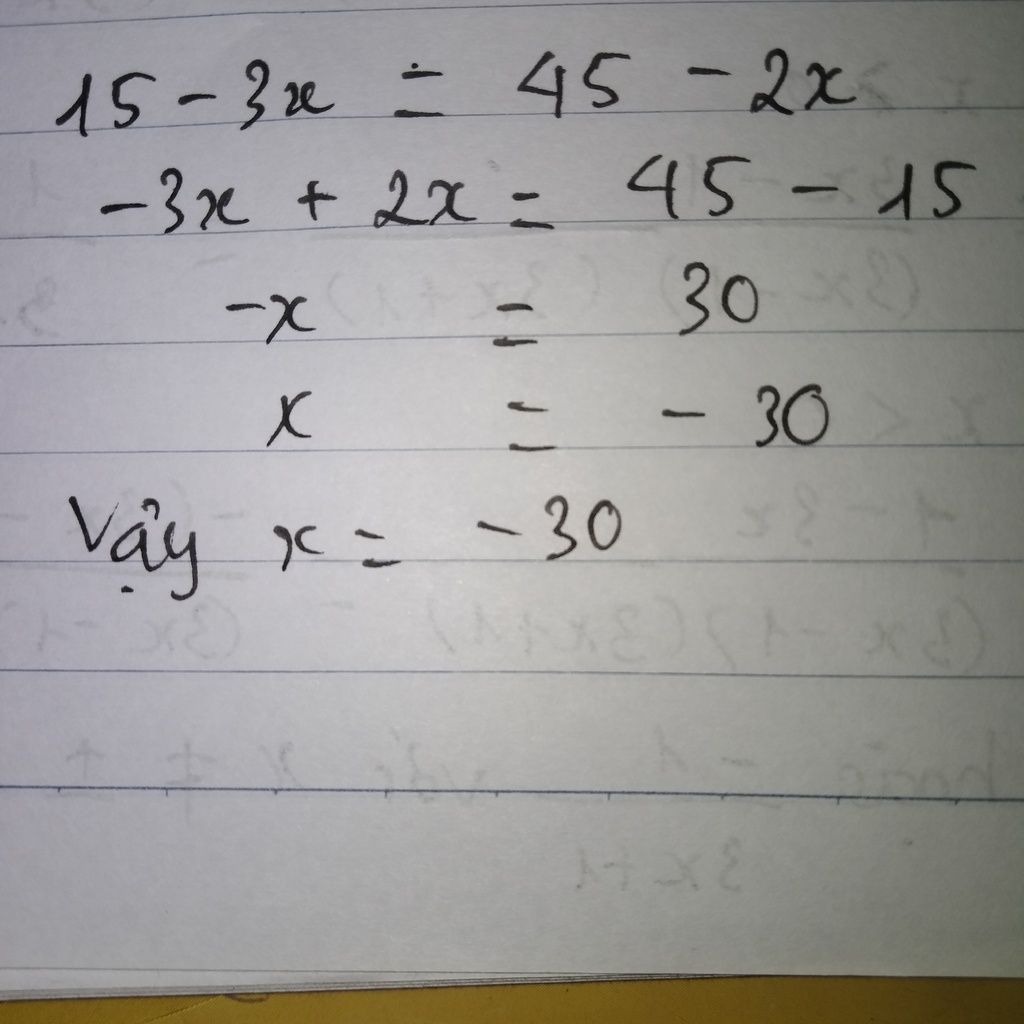 15 - 3x = 45 - 2x
-3x + 2x = 45 - 15
-x = 30
x = - 30
Vậy x = - 30